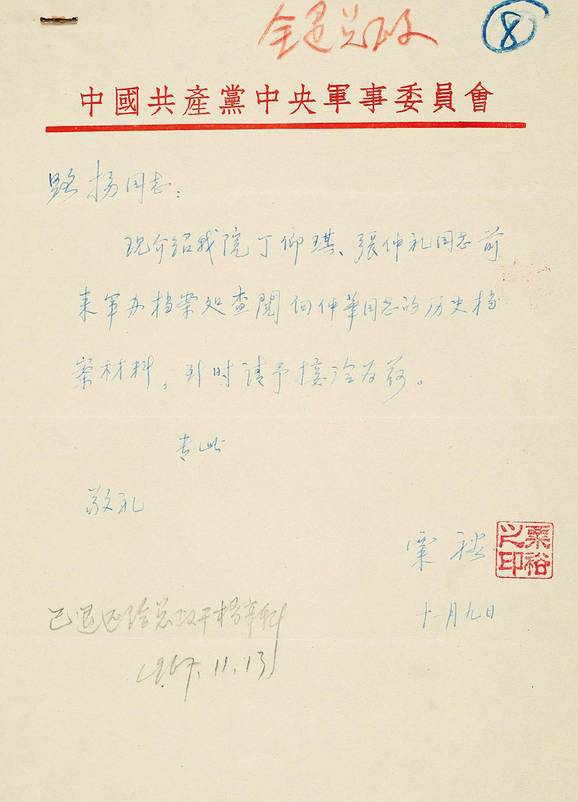 全退总政
8
中國共產黨中央軍事委員會
路扬同志：
现介绍我院丁仰琪、張仲礼同志前
来军办档案处查閱向仲華同志的历史档
案材料，到时请予接洽为荷。
专此
敬礼
粟裕
粟裕之印
十月九日
已退还给总政干档案科
1967.11.13